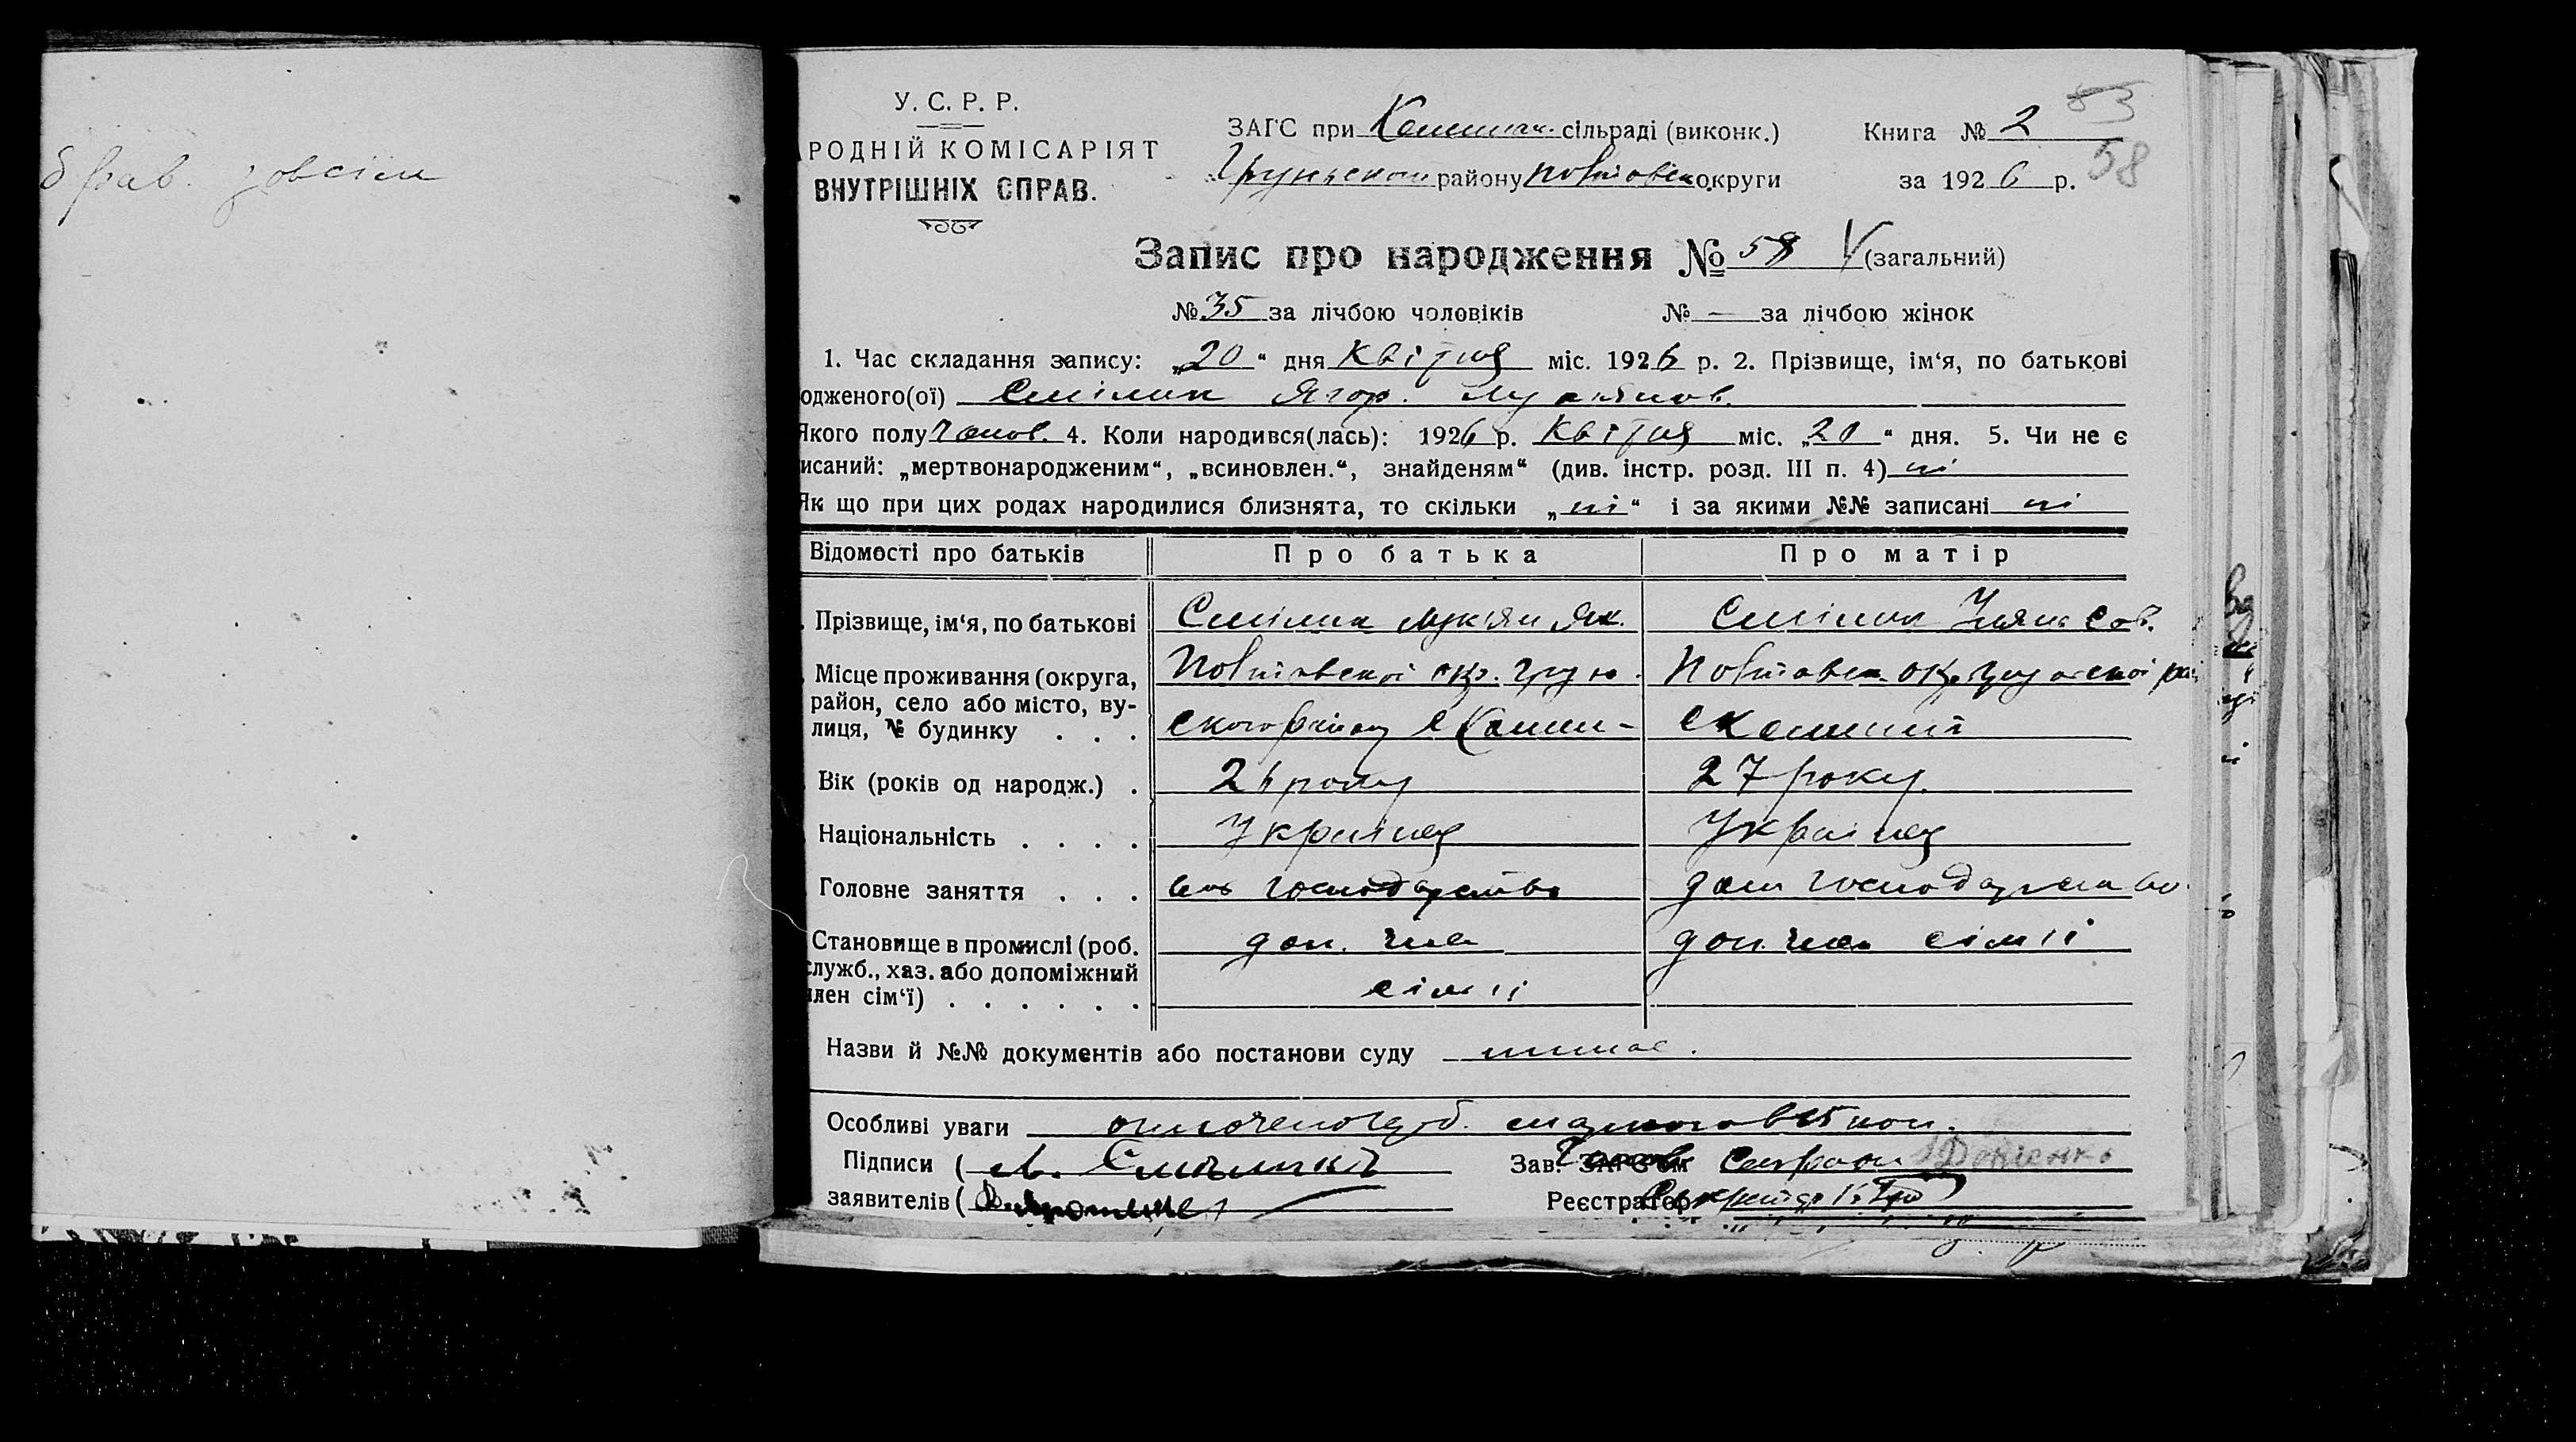 У. С. Р. Р.
РОДНІЙ КОМІСАРІЯТ
ВНУТРІШНІХ СПРАВ.
ЗАГС при сільраді (виконк.)
Грунського району Полтавськ округи
Книга № 2
53
за 1926 р.
58
Запис про народження № 58 V (загальний)
№ 35 за лічбою чоловіків № — за лічбою жінок
1. Час складання запису: „20“ дня Квітня міс. 1926 р. 2. Прізвище, ім‘я, по батькові
одженого(ої) Смілик Ягор. Лукянов.
Якого полу Чолов. 4. Коли народився(лась): 1926 р. Квітня міс. „20“ дня. 5. Чи не є
исаний: „мертвонародженим“, „всиновлен.“, знайденям“ (див. інстр. розд. III п. 4) ні
Як що при цих родах народилися близнята, то скільки „ні“ і за якими №№ записані ні
Відомості про батьків Про батька Про матір
Прізвище, ім‘я, по батькові Смілик Лук‘ян Як. Смілик Уляна Сав.
Місце проживання (округа, Полтавської окр. Грун- Полтавськ. окр. Грунської рай
район, село або місто, ву-
лиця, № будинку . . . ского району
Вік (років од народж.) . 26 року 27 року
Національність . . . . Українец Українец
Головне заняття . . . господарство дом господарство
Становище в промислі (роб. доп. член доп. член сімії
служб., хаз. або допоміжний
член сім‘ї) . . . . . . сімії
Назви й №№ документів або постанови суду немає.
Особливі уваги 15 коп.
Підписи ( Л. Смілик
Зав. ЗАГС‘ом
заявителів (
Реєстратор